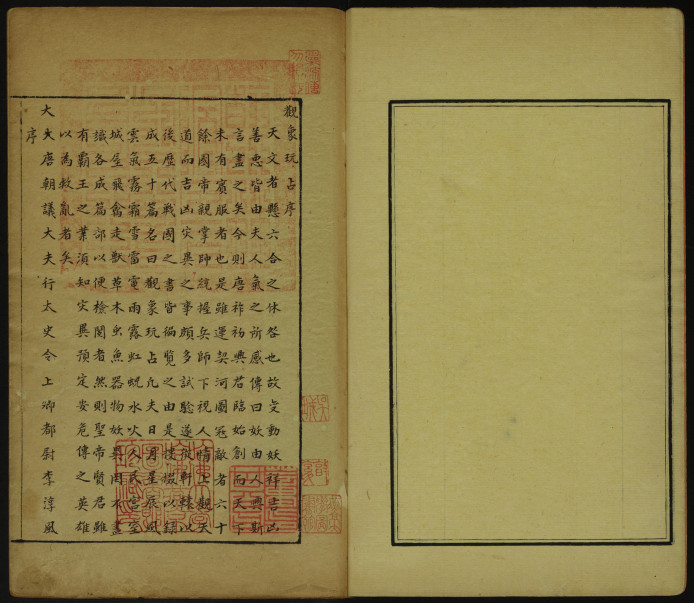 觀象玩占序
天文者懸六合之休咎也故變動妖祥吉凶
善惡皆由夫人氣之所感傳曰妖由人興斯
言盡之矣今則唐祚初興君臨始創而天下
未有賓服者也是雖運契河圖冠敵者六十
餘國帝親掌師統握兵師下視人情上觀天
道而吉凶灾異之事頗多試驗遂做軒轅以
後歷代戰國之書皆徧覽之由是搜掇以錄
成五十篇名曰觀象玩占凡夫日月星辰風
雲氣霧霜雪雷電雨露虹蜺水火人民宮室
城屋飛禽走獸草木虫魚器物妖異周不盡
識各成篇部以便檢閱者然則聖帝賢君雖
有霸王之業須知灾異預定安危傳之英雄
以為救亂者矣
大文唐朝議大夫行太史令上卿都尉李淳風
序